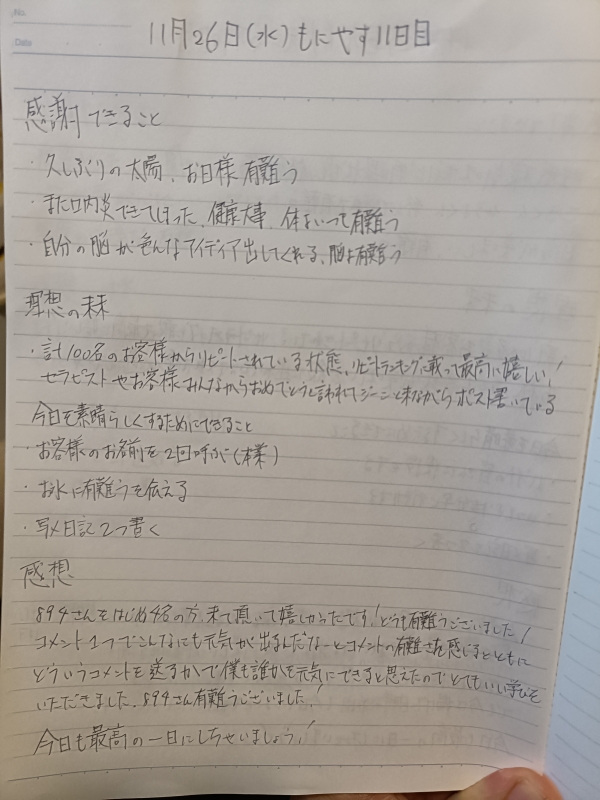 No.
Date
11月26日(水)もにやす11日目
感謝できること
・久しぶりの太陽、お日様有難う
・また口内炎できてしまった、健康大事、体よいつも有難う
・自分の脳が色んなアイディア出してくれる、脳よ有難う
理想の未来
・計100名のお客様からリピートされている状態、リピトランキング載って最高に嬉しい!
セラピストやお客様みんなからおめでとうと言われてジーンと来ながらポスト書いている
今日を素晴らしくするためにできること
・お客様のお名前を2回呼ぶ(様)
・お水に有難うを伝える
・写メ日記2つ書く
感想
894さんをはじめ4名の方、来て頂いて嬉しかったです!どうも有難うございました!
コメント1つでこんなにも元気が出るんだなーとコメントの有難さを感じるとともに
どういうコメントを送るかで僕も誰かを元気にできると思えたのでとてもいい学びを
いただきました、894さん有難うございました!
今日も最高の一日にしちゃいましょう!